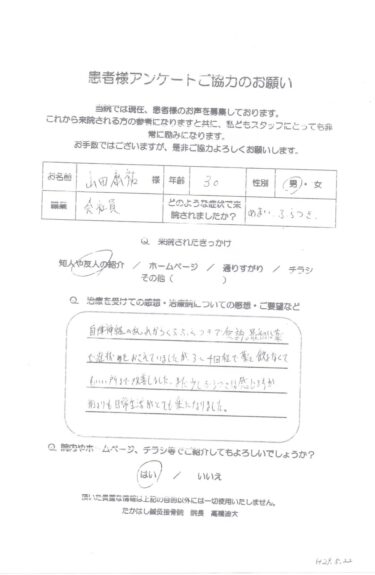 患者様アンケートご協力のお願い
当院では現在、患者様のお声を募集しております。
これから来院される方の参考になりますと共に、私どもスタッフにとっても非
常に励みになります。
お手数ではございますが、是非ご協力よろしくお願いします。
お名前 山田 様 年齢 30 性別 男・女
職業 会社員 どのような症状で来院されましたか? めまい、ふらつき
Q 来院されたきっかけ
知人や友人の紹介 / ホームページ / 通りすがり / チラシ
その他( )
Q 治療を受けての感想・治療院についての感想・ご要望など
自律神経の
3〜4回程で薬を飲まなくて
改善しました。まだ少しふらつきは
前よりも日常生活がとても楽になりました。
Q 院内やホームページ、チラシ等でご紹介してもよろしいでしょうか?
はい / いいえ
頂いた貴重な情報は上記の目的以外には一切使用いたしません。
たかはし鍼灸接骨院 院長 高橋迪大
H29.8.22